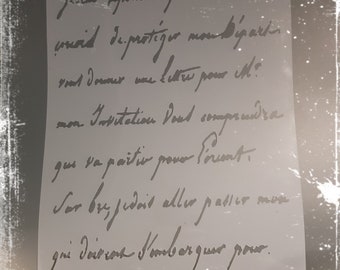 de protéger mon Départ
vous donner une lettre pour Mr
mon Invitation Vous comprendrez
que va partir pour l'orient.
Sur bre, je dois aller passer mon
qui doivent s'embarquer pour.